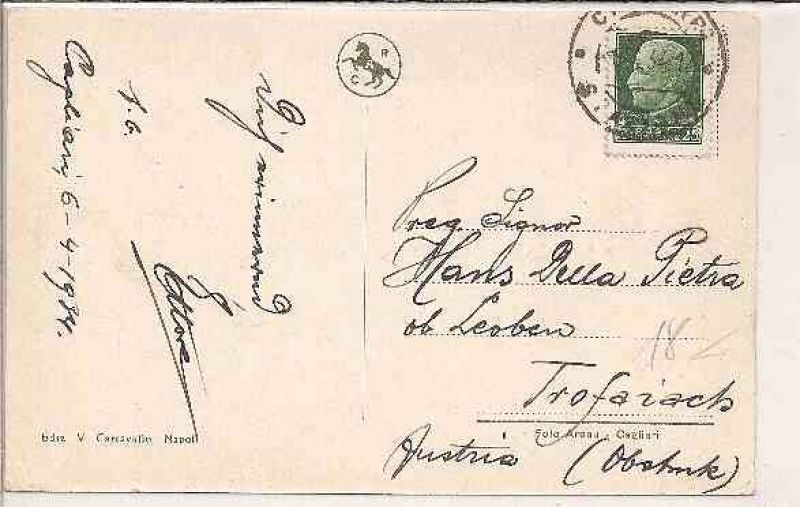 R
C
Cagliari, 6-4-1934.
Ettore
Preg Signor
Hans Della Pietra
ob Leoben
Trofaiach
Austria (Obstmk)
18
Ediz V Carcavallo Napoli
Foto Arnau - Cagliari